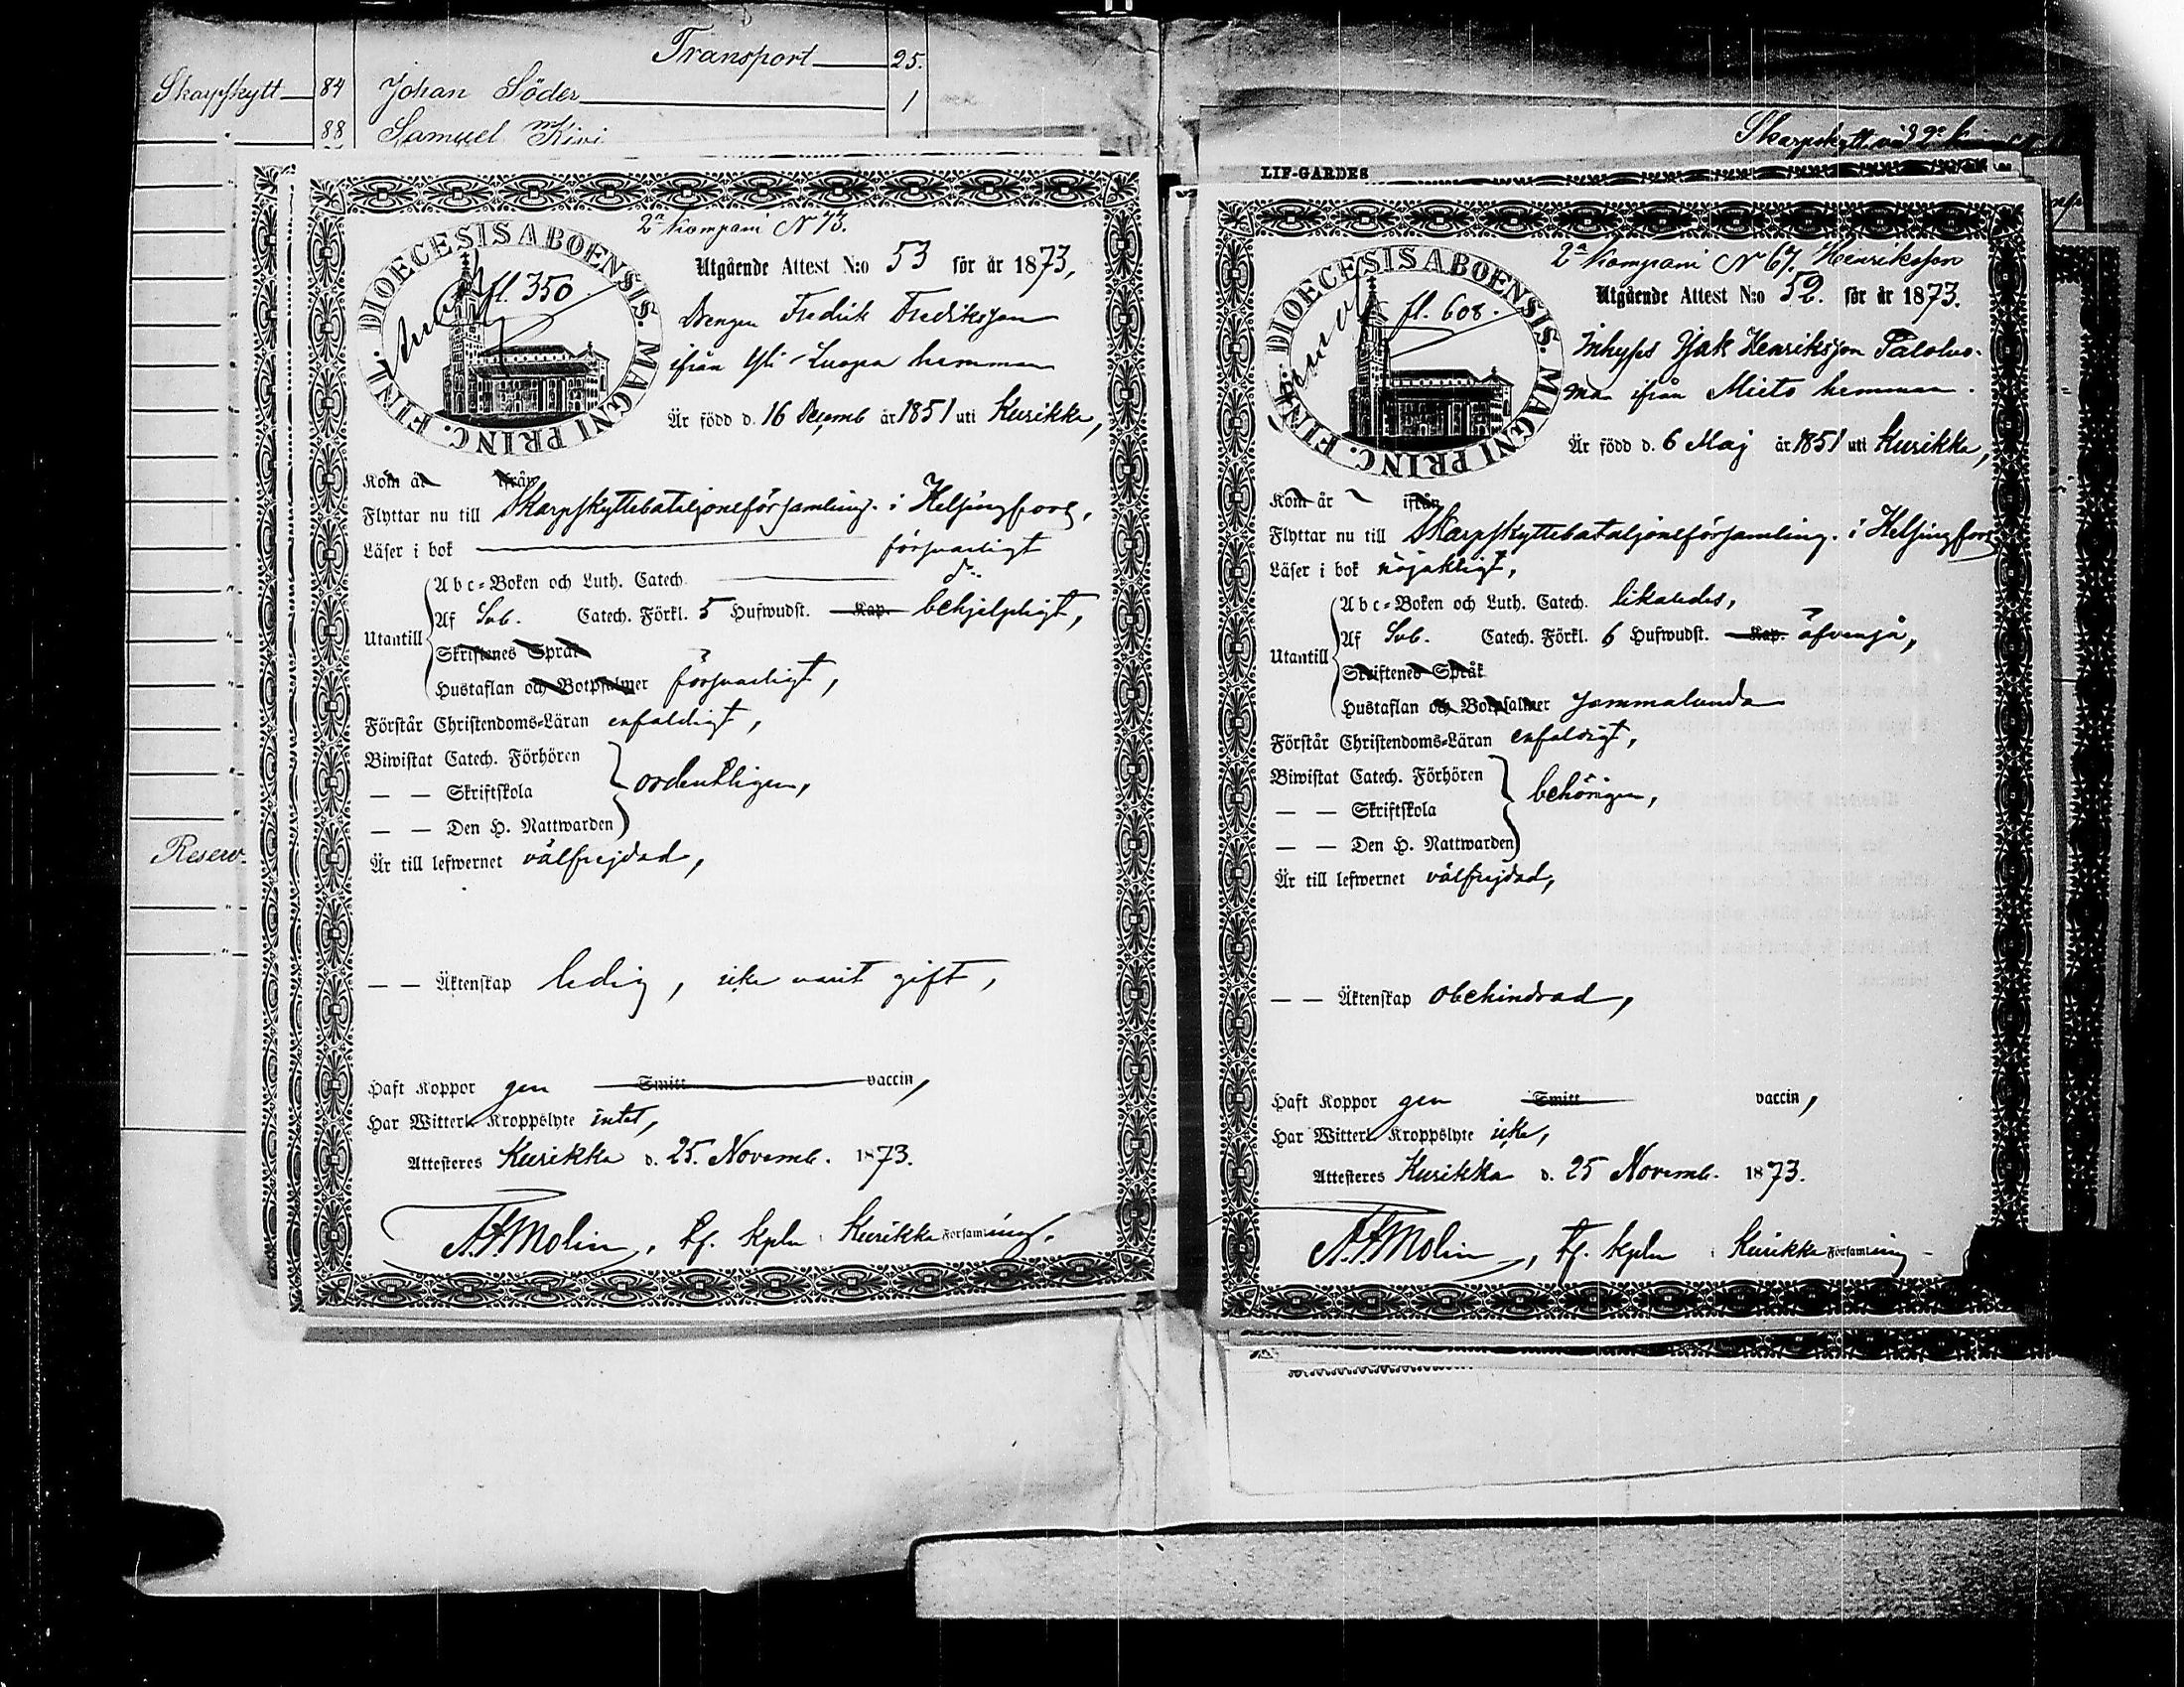 Transport 25.
Skarpskytt 84 Johan Söder 1
88 Samuel Kivi
Reserv.
2a Kompani N 73.
DIOECESIS ABOENSIS. MAGNI PRINC. FINL.
fl. 350
Utgående Attest N:o 53 för år 1873,
Drengen Fredrik Fredriksson
ifrån Yli-Luopa hemman
Är född d. 16 Decemb år 1851 uti Kurikka,
Kom år ifrån
Flyttar nu till Skarpskyttebataljonsförsamling. i Helsingfors,
Läser i bok försvarligt
Abc-Boken och Luth. Catech. d:o
Utantill Af Sveb. Catech. Förkl. 5 Hufwudst. Kap. behjelpligt,
Skriftenes Språk
Hustaflan och Botpsalmer försvarligt,
Förstår Christendoms-Läran enfaldigt,
Biwistat Catech. Förhören
— — Skriftskola ordentligen,
— — Den H. Nattwarden
Är till lefwernet välfrejdad,
— — Äktenskap ledig, icke varit gift,
Haft Koppor gen Smitt vaccin,
Har Witterl. Kroppslyte intet,
Attesteres Kurikka d. 25. Novemb. 1873.
A. F. Molin, tf. kpln i Kurikka Församling.
Skarpskytt vid 2a
LIF-GARDES
2a Kompani N 67. Henriksson
DIOECESIS ABOENSIS. MAGNI PRINC. FINL.
fl. 608.
Utgående Attest N:o 52. för år 1873.
Inhyses Isak Henriksson Paloluo-
ma ifrån Mieto hemman.
Är född d. 6 Maj år 1851 uti Kurikka,
Kom år ifrån
Flyttar nu till Skarpskyttebataljonsförsamling. i Helsingfors
Läser i bok nöjaktigt,
Abc-Boken och Luth. Catech. likaledes,
Utantill Af Sveb. Catech. Förkl. 6 Hufwudst. Kap. äfvenså,
Skriftenes Språk
Hustaflan och Botpsalmer sammalunda
Förstår Christendoms-Läran enfaldigt,
Biwistat Catech. Förhören
— — Skriftskola behörigen,
— — Den H. Nattwarden
Är till lefwernet välfrejdad,
— — Äktenskap obehindrad,
Haft Koppor gen Smitt vaccin,
Har Witterl. Kroppslyte icke,
Attesteres Kurikka d. 25 Novemb. 1873.
A. F. Molin, tf. kpln i Kurikka Församling